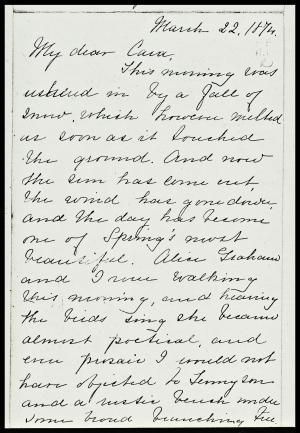 March 22, 1874.
My dear Cara,
This morning was
ushered in by a fall of
snow, which however melted
as soon as it touched
the ground. And now
the sun has come out,
the wind has gone down,
and the day has become
one of Spring's most
beautiful. Alice Graham
and I were walking
this morning, and hearing
the birds sing she became
almost poetical, and
even prosaic I would not
have objected to Tennyson
and a rustic bench under
some broad branching tree